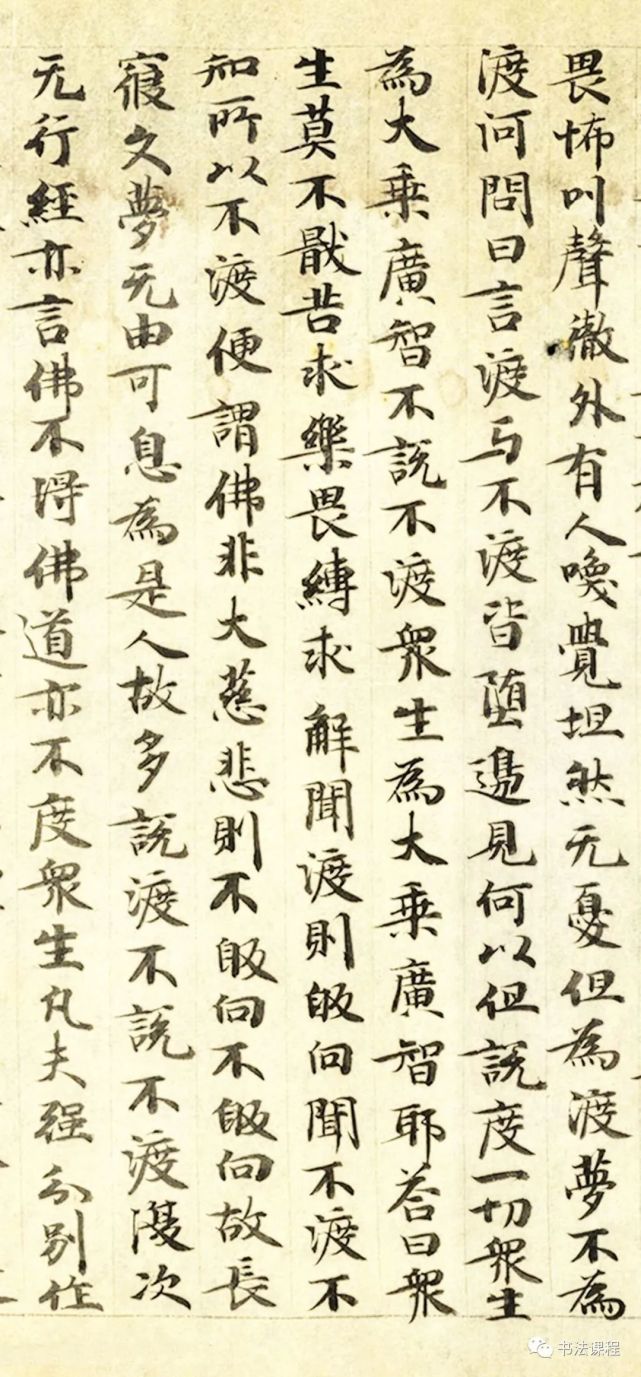 畏怖叫聲徹外有人喚覺坦然无憂但為渡夢不為
渡河問曰言渡与不渡皆堕邊見何以但說度一切衆生
為大乗廣智不說不渡衆生為大乗廣智耶荅曰衆
生莫不猒苦求樂畏縛求解聞渡則皈向聞不渡不
知所以不渡便謂佛非大慈悲則不皈向不皈向故長
寢久夢无由可息為是人故多說渡不說不渡澓次
无行經亦言佛不得佛道亦不度衆生凢夫强分别作
书法课程